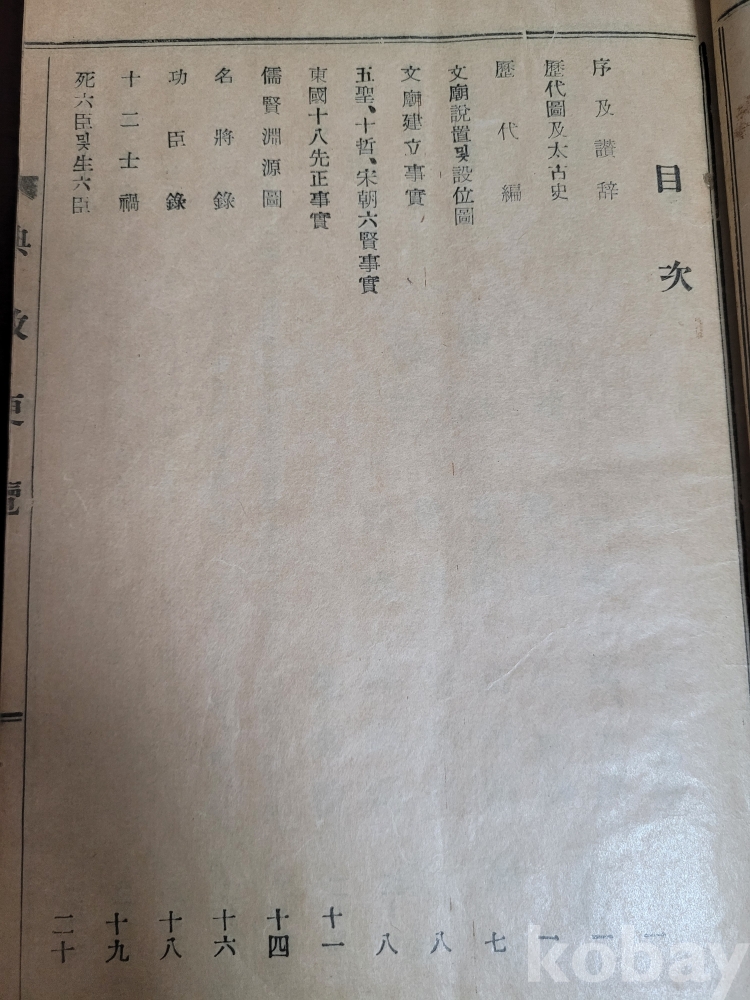 目次
序及讚辞
歷代圖及太古史 一
歷代編 七
文廟說置및設位圖 八
文廟建立事實 八
五聖、十哲、宋朝六賢事實 十一
東國十八先正事實 十四
儒賢淵源圖 十六
名將錄 十八
功臣錄 十九
十二士禍 二十
死六臣및生六臣
覽
kobay